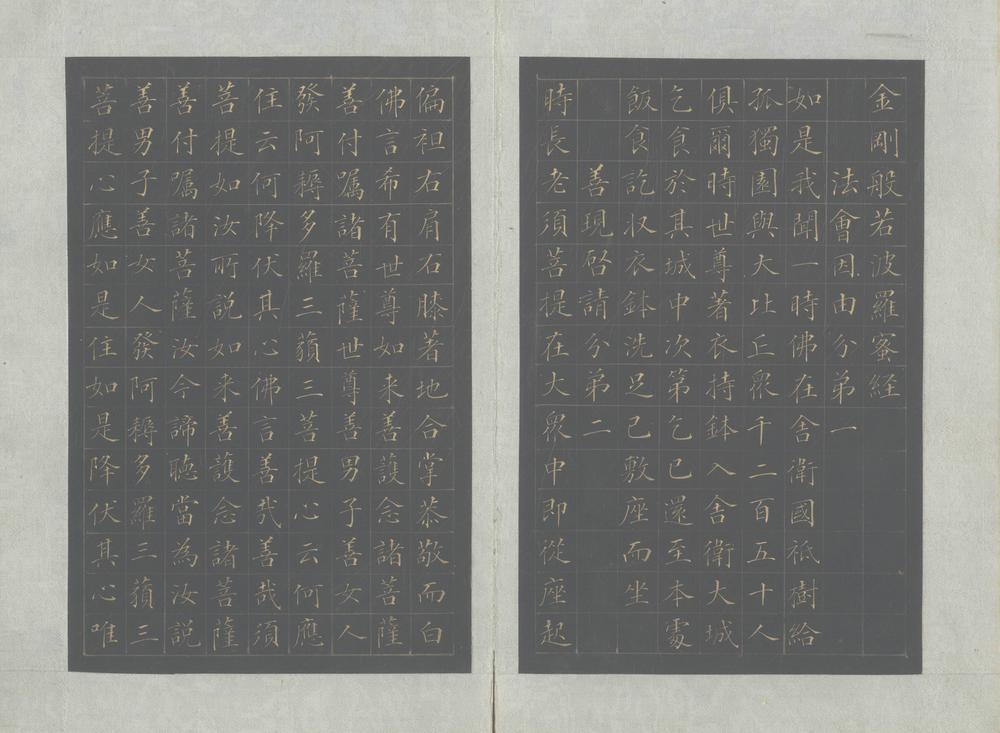 金剛般若波羅蜜経
法會因由分弟一
如是我聞一時佛在舍衛國祇樹給
孤獨園與大比丘眾千二百五十人
俱爾時世尊著衣持鉢入舍衛大城
乞食於其城中次第乞已還至本處
飯食訖收衣鉢洗足已敷座而坐
善現啓請分弟二
時長老須菩提在大眾中即從座起
偏袒右肩右膝著地合掌恭敬而白
佛言希有世尊如来善護念諸菩薩
善付嘱諸菩薩世尊善男子善女人
發阿耨多羅三藐三菩提心云何應
住云何降伏其心佛言善哉善哉須
菩提如汝所説如来善護念諸菩薩
善付嘱諸菩薩汝今諦聴當為汝説
善男子善女人發阿耨多羅三藐三
菩提心應如是住如是降伏其心唯